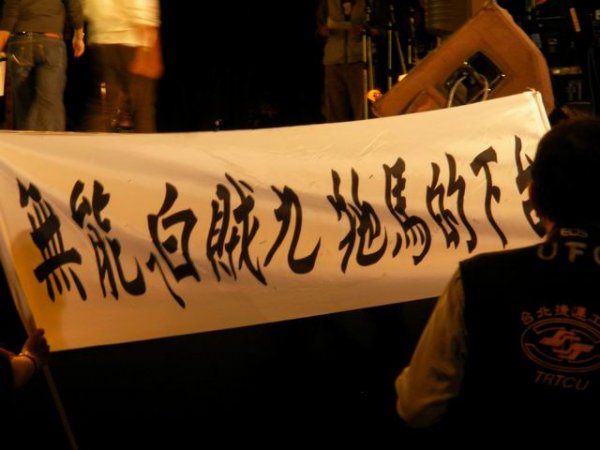 無能白賊九牠馬的下
台北捷運工
TRTCU